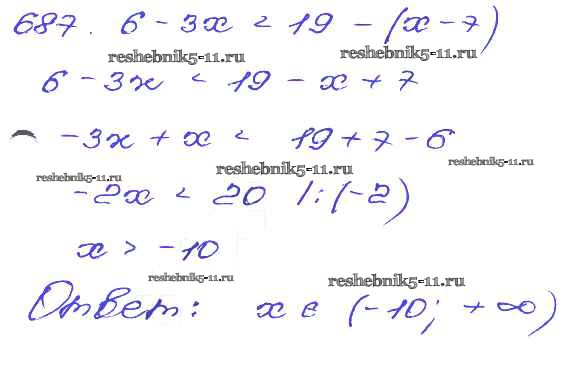 687. 6 - 3x < 19 - (x - 7)
reshebnik5-11.ru reshebnik5-11.ru
6 - 3x < 19 - x + 7
-3x + x < 19 + 7 - 6
reshebnik5-11.ru reshebnik5-11.ru
reshebnik5-11.ru
-2x < 20 /:(-2)
x > -10
reshebnik5-11.ru reshebnik5-11.ru
Ответ: x ∈ (-10; +∞)